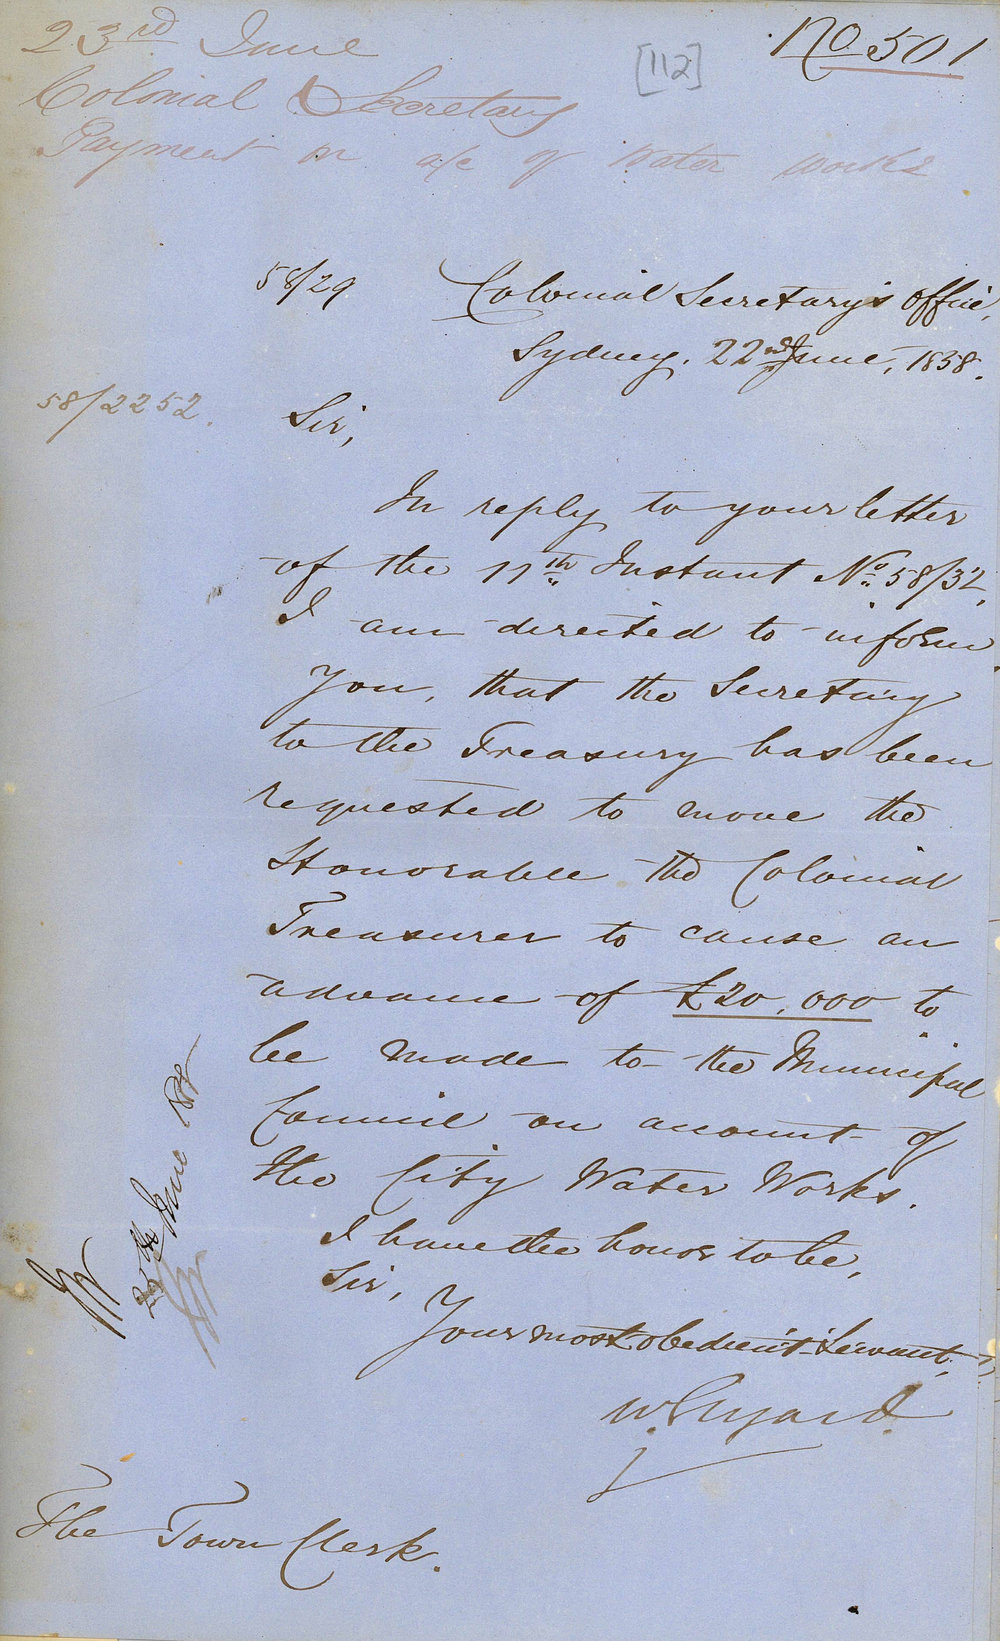 23rd June
[112]
No 501
Colonial Secretary
Payment on a/c of Water Works
58/29
Colonial Secretary's Office,
Sydney. 22nd June, 1858.
58/2252.
Sir,
In reply to your letter
of the 11th Instant No. 58/32,
I am directed to inform
you, that the Secretary
to the Treasury has been
requested to move the
Honorable the Colonial
Treasurer to cause an
advance of £20,000 to
be made to the Municipal
Council on account of
the City Water Works.
I have the honor to be,
Sir,
Your most obedient Servant,
W Elyard
25th June
The Town Clerk.